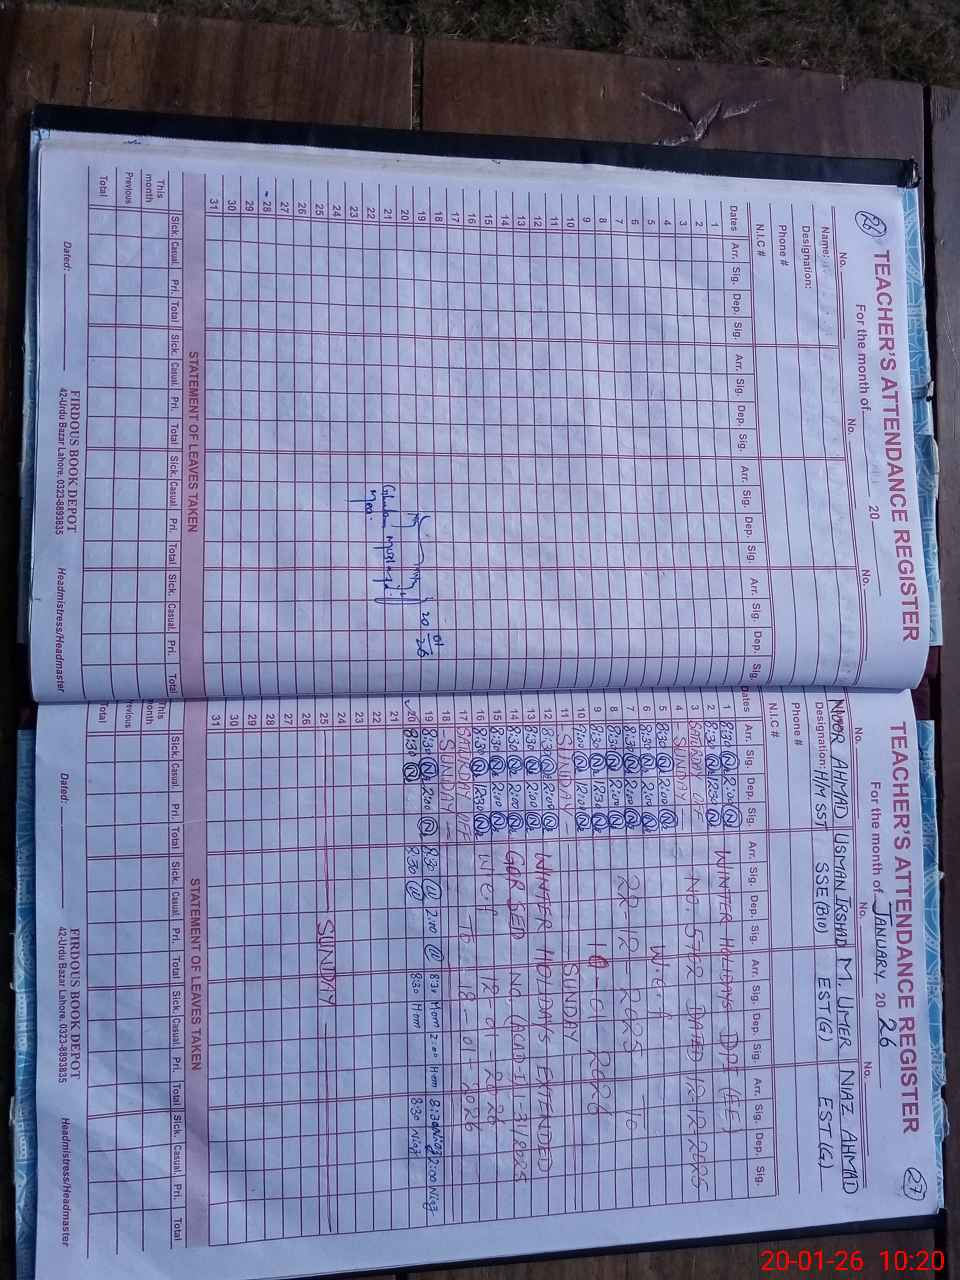 26
TEACHER'S ATTENDANCE REGISTER
For the month of 20
No. No. No.
Name:
Designation:
Phone #
N.I.C #
Dates Arr. Sig. Dep. Sig. Arr. Sig. Dep. Sig. Arr. Sig. Dep. Sig. Arr. Sig. Dep. Sig.
1
2
3
4
5
6
7
8
9
10
11
12
13
14
15
16
17
18
19
20 20 01 26
21
22 Ghulam
23
24
25
26
27
28
29
30
31
STATEMENT OF LEAVES TAKEN
Sick. Casual. Pri. Total Sick. Casual. Pri. Total Sick. Casual. Pri. Total Sick. Casual. Pri. Total
This month
Previous
Total
FIRDOUS BOOK DEPOT
42-Urdu Bazar Lahore, 0323-8893835
Dated: Headmistress/Headmaster
27
TEACHER'S ATTENDANCE REGISTER
For the month of JANUARY 20 26
No. No.
NOOR AHMAD USMAN IRSHAD M. UMER NIAZ AHMAD
Designation: H/M SST SSE(BIO) EST(G) EST(G)
Phone #
N.I.C #
Dates Arr. Sig. Dep. Sig. Arr. Sig. Dep. Sig. Arr. Sig. Dep. Sig. Arr. Sig. Dep. Sig.
1 8:30 2:00 WINTER HOLIDAYS DPI (EE)
2 8:30 12:30
3 SATURDAY OFF NO. 5702 DATED 12-12-2025
4 - SUNDAY -
5 8:30 2:00 W.e.f
6 8:30 2:00
7 8:30 2:00 22-12-2025 To
8 8:30 2:00
9 8:30 12:30 10-01-2026
10 9:00 12:00
11 - SUNDAY - SUNDAY
12 8:30 2:00 WINTER HOLIDAYS EXTENDED
13 8:30 2:00
14 8:30 2:00 GOP SED NO. (ACAD-1)
15 8:30 2:00
16 8:30 12:30 W.e.f 12-01-2026
17 SATURDAY OFF TO 18-01-2026
18 - SUNDAY -
19 8:30 2:00 8:30 2:00 2:00 8:30 Niaz 2:00 Niaz
20 8:30 8:30 8:30 8:30 Niaz
21
22
23
24
25 SUNDAY
26
27
28
29
30
31
STATEMENT OF LEAVES TAKEN
Sick. Casual. Pri. Total Sick. Casual. Pri. Total Sick. Casual. Pri. Total Sick. Casual. Pri. Total
This month
Previous
Total
FIRDOUS BOOK DEPOT
42-Urdu Bazar Lahore, 0323-8893835
Dated: Headmistress/Headmaster
20-01-26 10:20